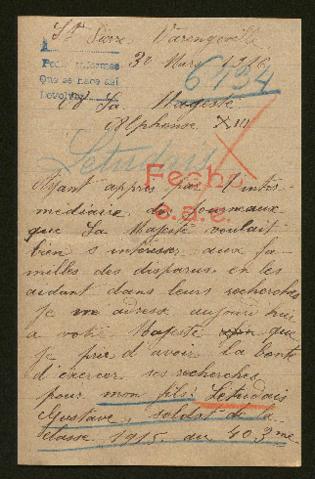 St Pierre Varengeville
30 Mars 1916
Pedir informes
Que se hace así
Devolver
6734
à Sa Majesté
Alphonse XIII
Letudais
Fecho
s.a.e.
Ayant appris par l'inter-
médiaire des journeaux
que Sa Majesté voulait
bien s intéresser aux fa-
milles des disparus en les
aidant dans leurs recherches
je me adresse aujourd hui
a votre Majesté que
je prie d'avoir la bonté
d'exercer ses recherches
pour mon fils: Letudais
Gustave, soldat de la
classe 1915 du 403me